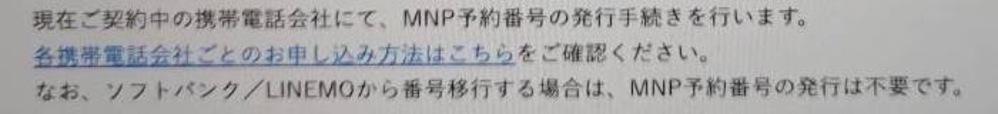 現在ご契約中の携帯電話会社にて、MNP予約番号の発行手続きを行います。
各携帯電話会社ごとのお申し込み方法はこちらをご確認ください。
なお、ソフトバンク／LINEMOから番号移行する場合は、MNP予約番号の発行は不要です。